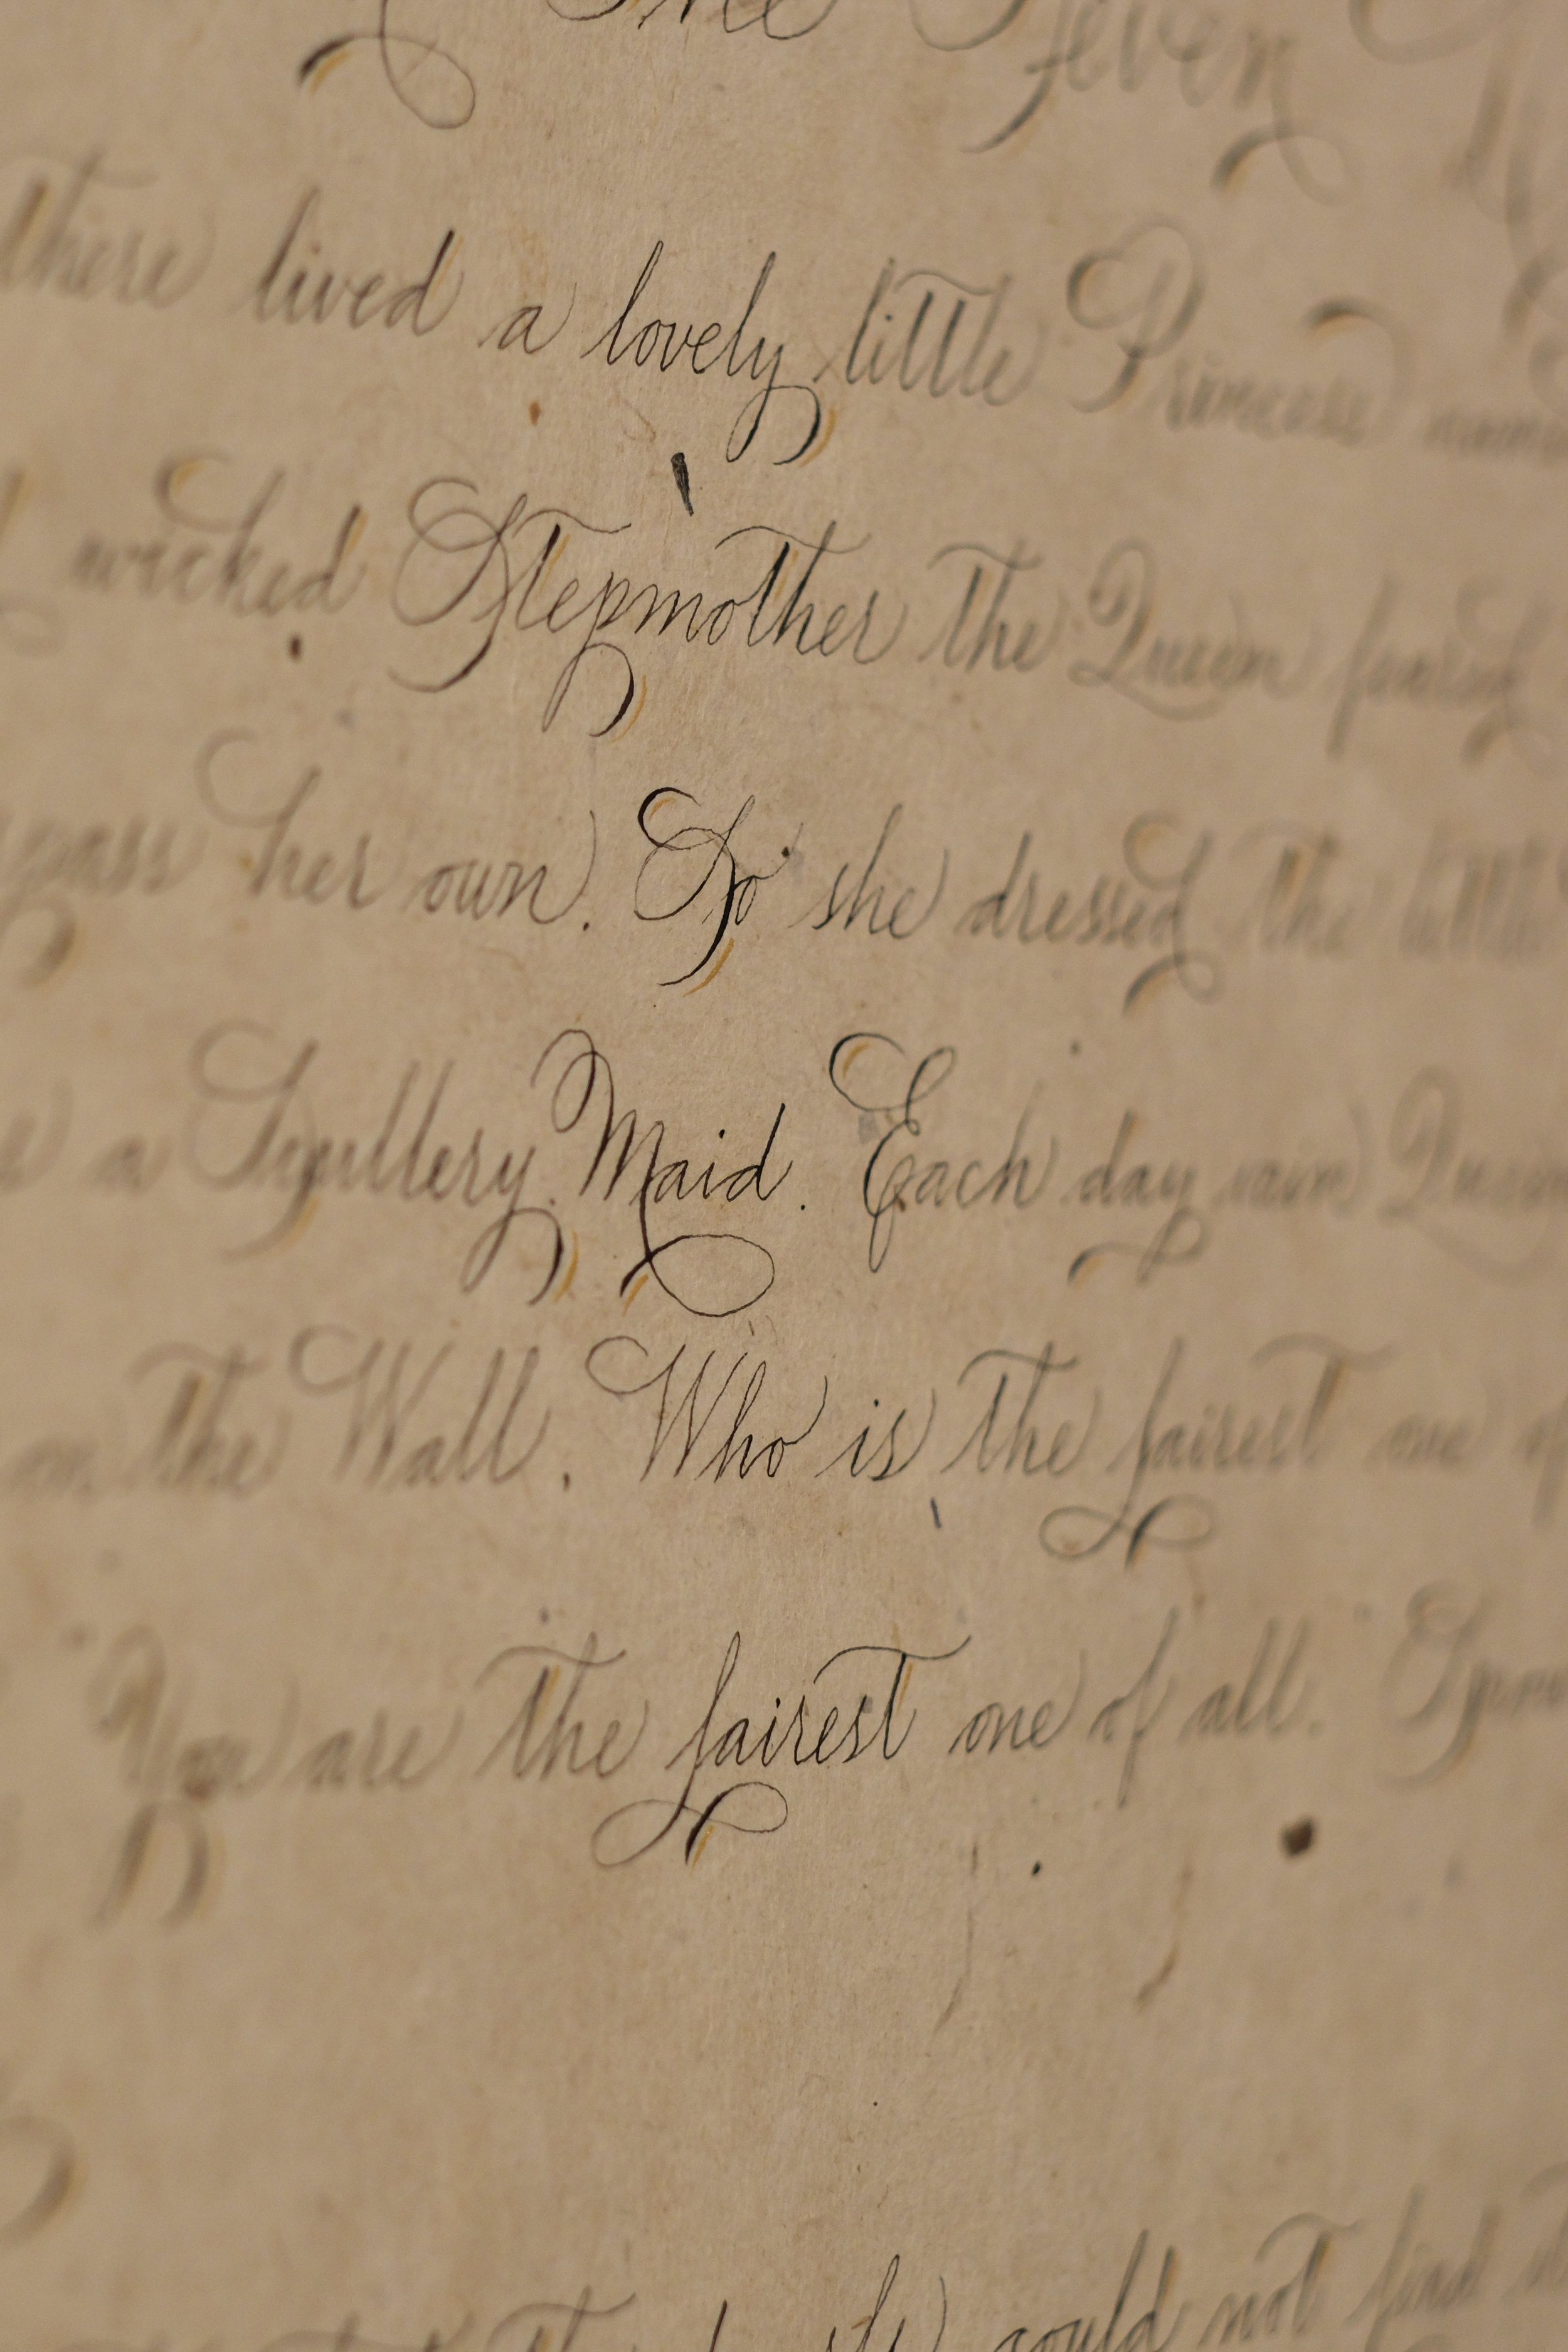 The Seven
there lived a lovely little Princess
wicked Stepmother the Queen
her own. So she dressed the little
a Scullery Maid. Each day vain Queen
the Wall. Who is the fairest one of
"You are the fairest one of all."
she could not find